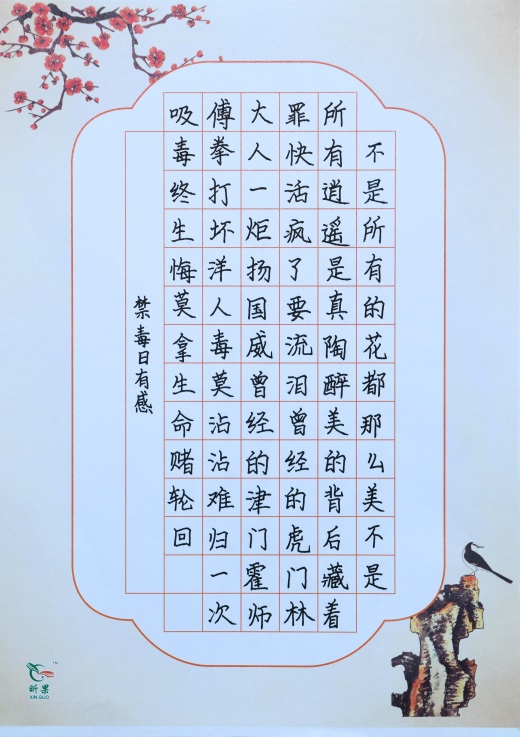 不是所有的花都那么美不是
所有逍遥是真陶醉美的背后藏着
罪快活疯了要流泪曾经的虎门林
大人一炬扬国威曾经的津门霍师
傅拳打坏洋人毒莫沾沾难归一次
吸毒终生悔莫拿生命赌轮回
禁毒日有感
昕果
XIN GUO
TM